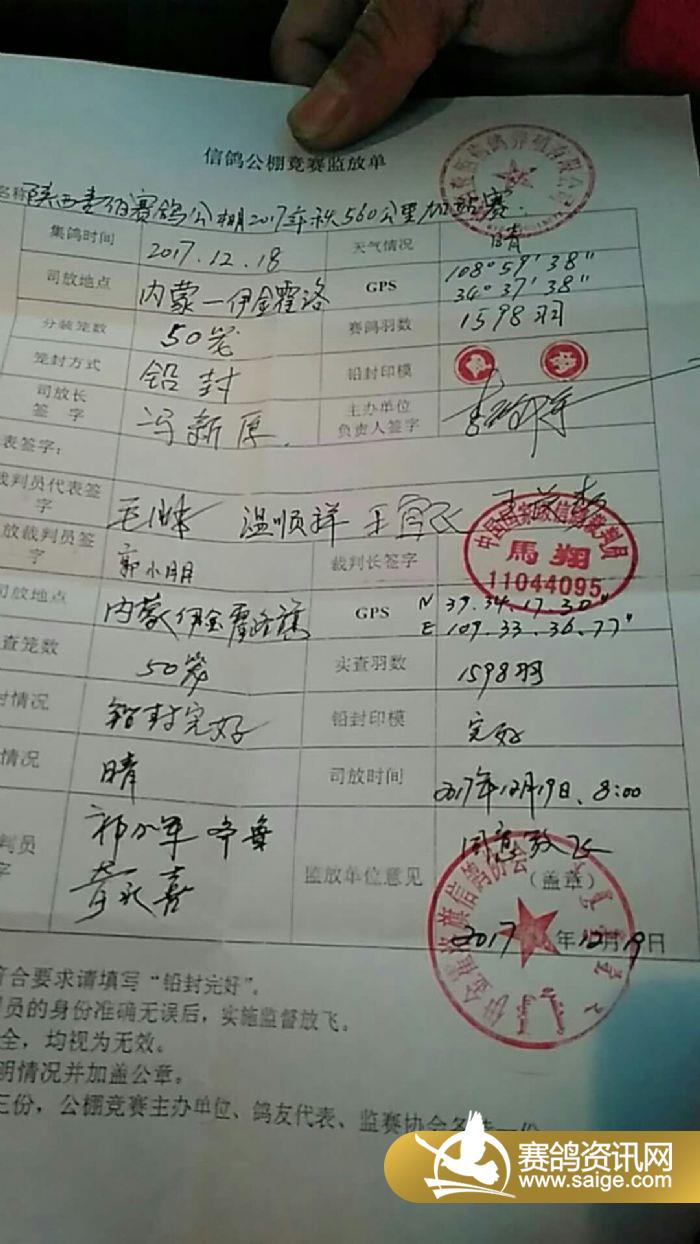 信鸽公棚竞赛监放单
名称 陕西 赛鸽公棚2017年秋560公里加站赛
集鸽时间 2017.12.18 天气情况 晴
司放地点 内蒙一伊金霍洛 GPS 108°59′38″ 34°37′38″
分装笼数 50笼 赛鸽羽数 1598羽
笼封方式 铅封 铅封印模
司放长签字 冯新厚 主办单位负责人签字
表签字：
裁判员代表签字 温顺祥
放裁判员签字 郭小朋 裁判长签字
中国国家级信鸽裁判员
馬翔
11044095
司放地点 内蒙伊金霍洛旗 GPS N 39.34.17.30″
E 109.33.36.77″
查笼数 50笼 实查羽数 1598羽
封情况 铅封完好 铅封印模 完好
情况 晴 司放时间 2017年12月19日、8:00
判员字 监放单位意见 同意放飞
（盖章）
2017年12月19日
伊金霍洛旗信鸽协会
符合要求请填写“铅封完好”。
员的身份准确无误后，实施监督放飞。
全，均视为无效。
明情况并加盖公章。
三份，公棚竞赛主办单位、鸽友代表、监赛协会各 一份
赛鸽资讯网
www.saige.com